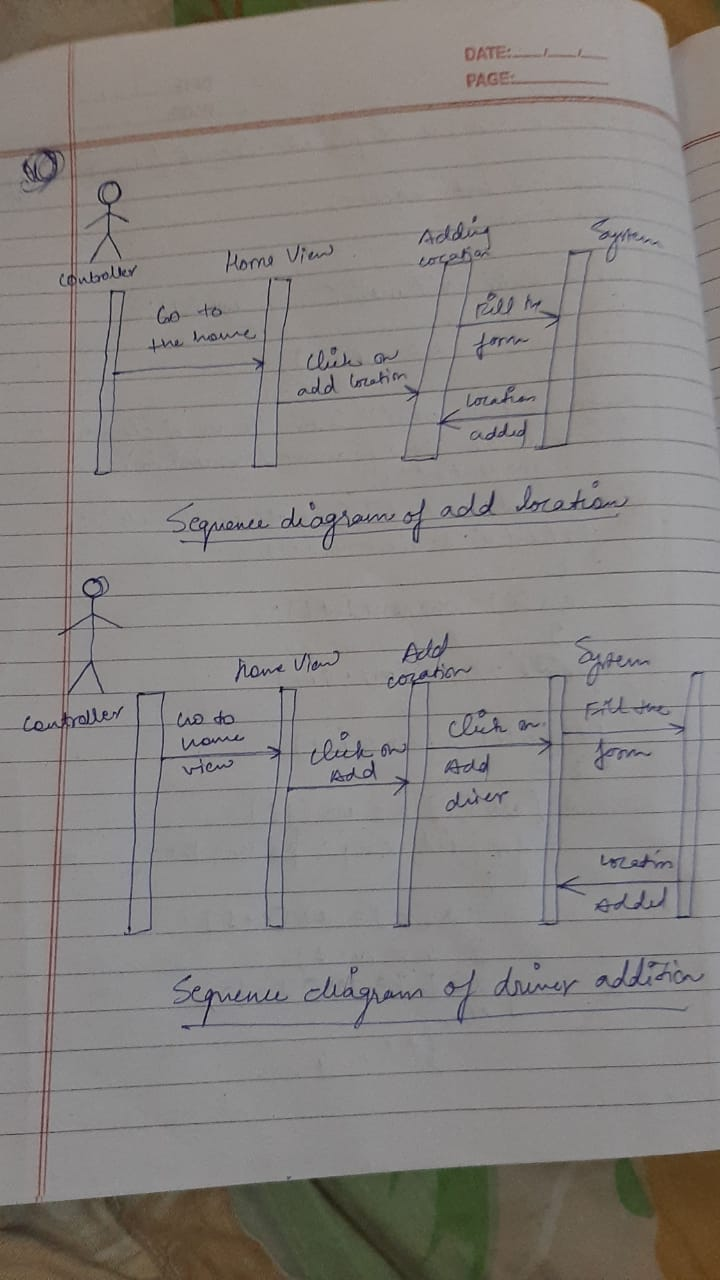 DATE: / /
PAGE:
Controller
Home View
Adding
Location
System
Go to
the home
Click on
add location
Fill the
form
Location
added
Sequence diagram of add location
Controller
home View
Add
Location
System
Go to
home
view
Click on
Add
Click on
Add
diver
Fill the
form
Locatin
Added
Sequence diagram of driver addition